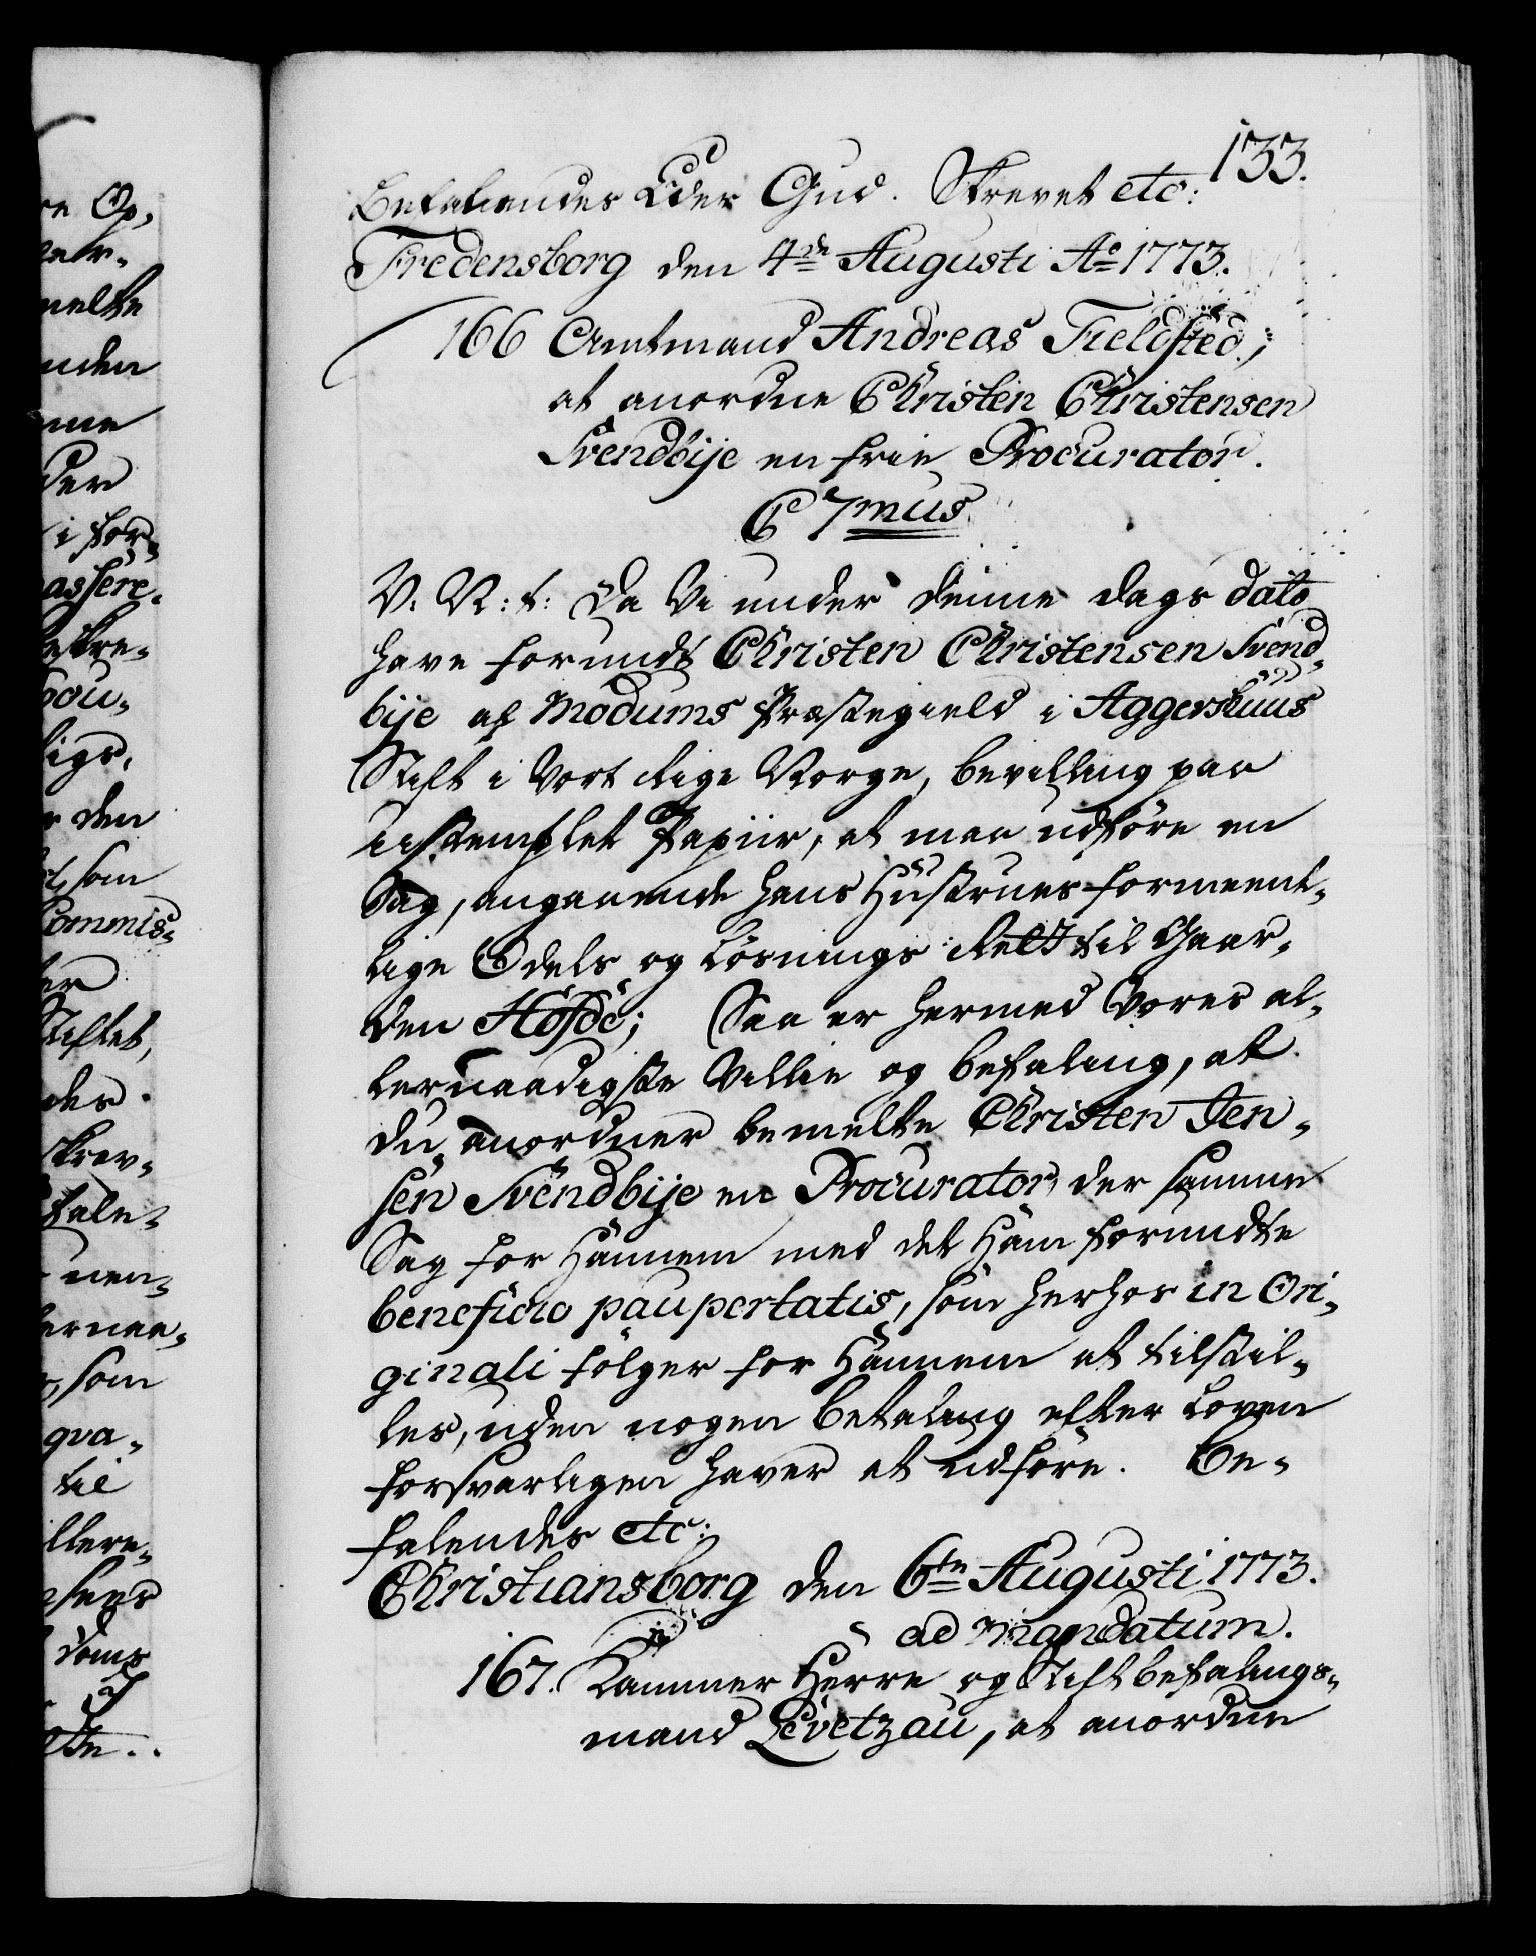 133.
Befalendes Eder Gud. Skrevet etc:
Fredensborg den 4de Augusti Ao 1773.
166 Amtmand Andreas Fieldsted;
at anordne Christen Christensen
Svendbije en frie Procurator.
C 7mus
V. G: t: Da Vi under denne Dags dato
have forundt Christen Christensen Svend-
bije af Modums Præstegield i Aggershuus
Stift i Vort Rige Norge, bevilling paa
ustemplet Papiir, at maa udföre en
Sag, angaaende hans Hustrues formeent-
lige Odels og Lösnings Rett til Gaar-
den Hofde; Saa er hermed Vores al-
lernaadigste Villie og befaling, at
du anordner bemelte Christen Jen-
sen Svendbije en Procurator, der samme
Sag for Hannem med det Ham forundte
beneficio paupertatis, som herhos in Ori-
ginali fölger for Hannem at tilstil-
les, uden nogen betaling efter Loven
forsvarligen haver at udföre. Be-
falendes etc:
Christiansborg den 6te Augusti 1773.
ad mandatum.
167. Kammer Herre og Stiftbefalings-
mand Levetzau, at anordne
re Op-
melte
nden
der
i for-
assere-
skre-
ligs-
den
som
Commis-
er
Stiftet,
des.
skrev-
fale-
nen-
ernaa-
som
qva-
til
llere-
doms